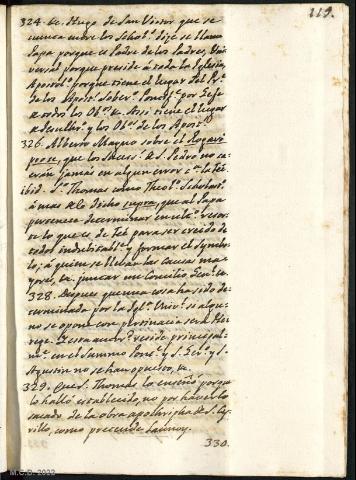 119.
324. &c. Hugo de San Victor que se
cuenca entre los Schol.s dize se llama
Papa porque es Padre de los Padres, Uni-
versal porque preside à toda la Iglesia,
Apost.o porque tiene el lugar del P.e
de los Apost.s sober.o Ponti.e por Gefe
de todos los Ob.s &c. Assi tiene el lugar
de Jesuchr.o y los Ob.s de los Apost.s
326. Alberto Magno sobre el Rogavi
pro te, que los sucess.s de S. Pedro no ca-
eràn jamàs en algun error c.a la feè.
ibid. S.to Thomas como Theol.o Scholast.o
à mas de lo dicho supra, que al Papa
pertenece determinar en ult.a resor-
te lo que es de feè para ser creido de
todos indubitabl.e y formar el Symbo-
lo; à quien se llevan las causas ma-
yores, &c. juntar un Concilio Ecu.co &c.
328. Despues que una cosa ha sido de-
terminada por la Igl.a Univ.l si algu-
no se opone con pertinacia serà He-
rege. Y esta autor.d reside principal-
m.te en el Summo Pont.e y S. Ger.o y S.
Agustin no se han opuesto, &c.
329. Que S. Thomas lo enseñò porque
lo hallò establecido, no por haverlo
sacado de la obra apocripha de S. Cy-
rillo, como pretende Launoy.
330.
M.C.D. 2022